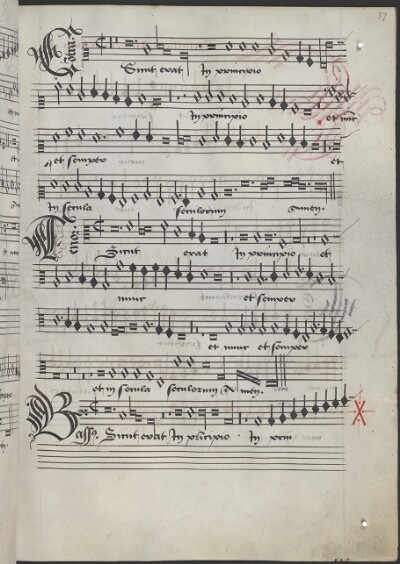 37
Sicut erat In principio
In principio et nūc
et semper et
In secula seculorum amen.
Tenor
Sicut erat In principio et
nunc et semper
et nunc et semper
et in secula seculorum A men.
Bassus Sicut erat In principio In prin